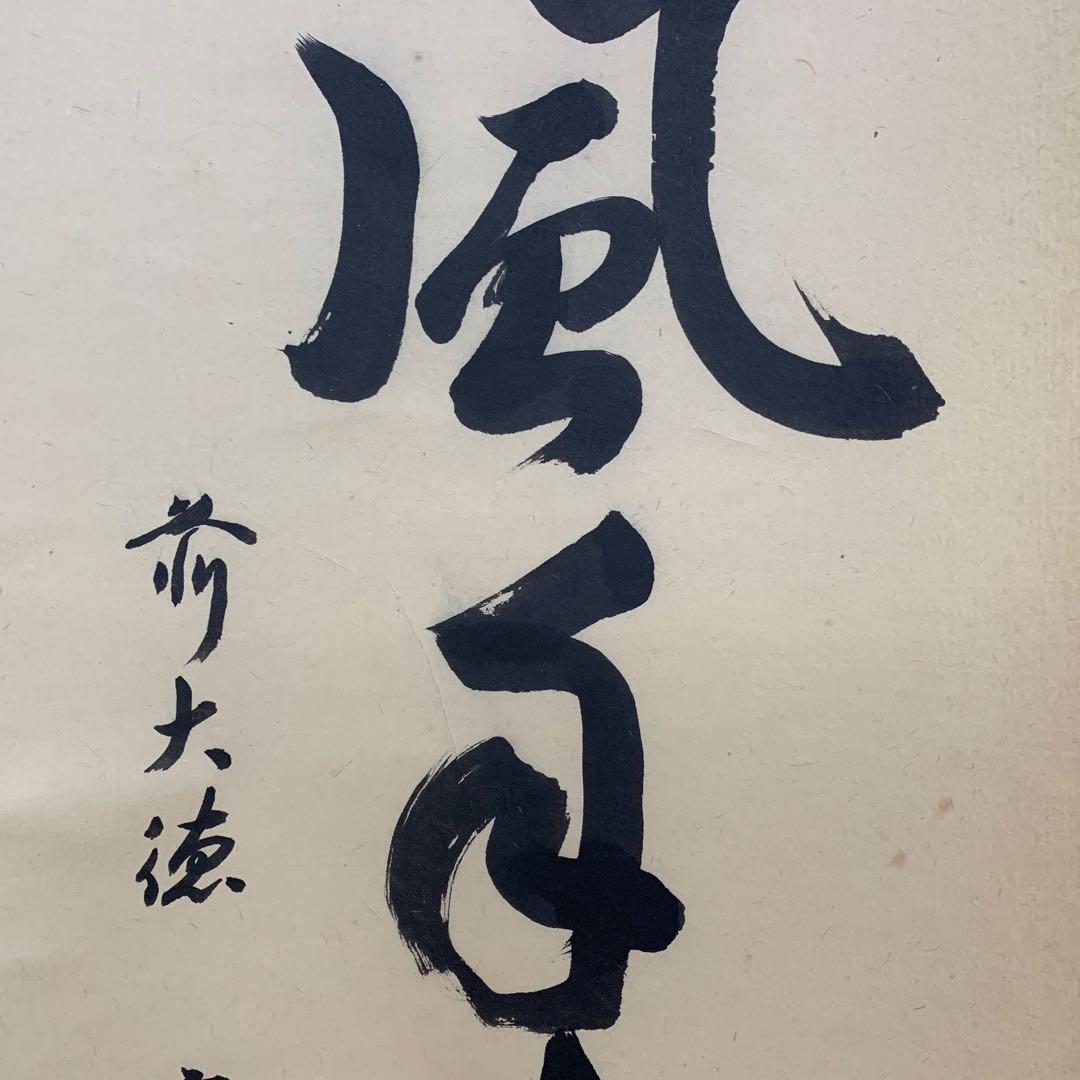 風自
前大徳